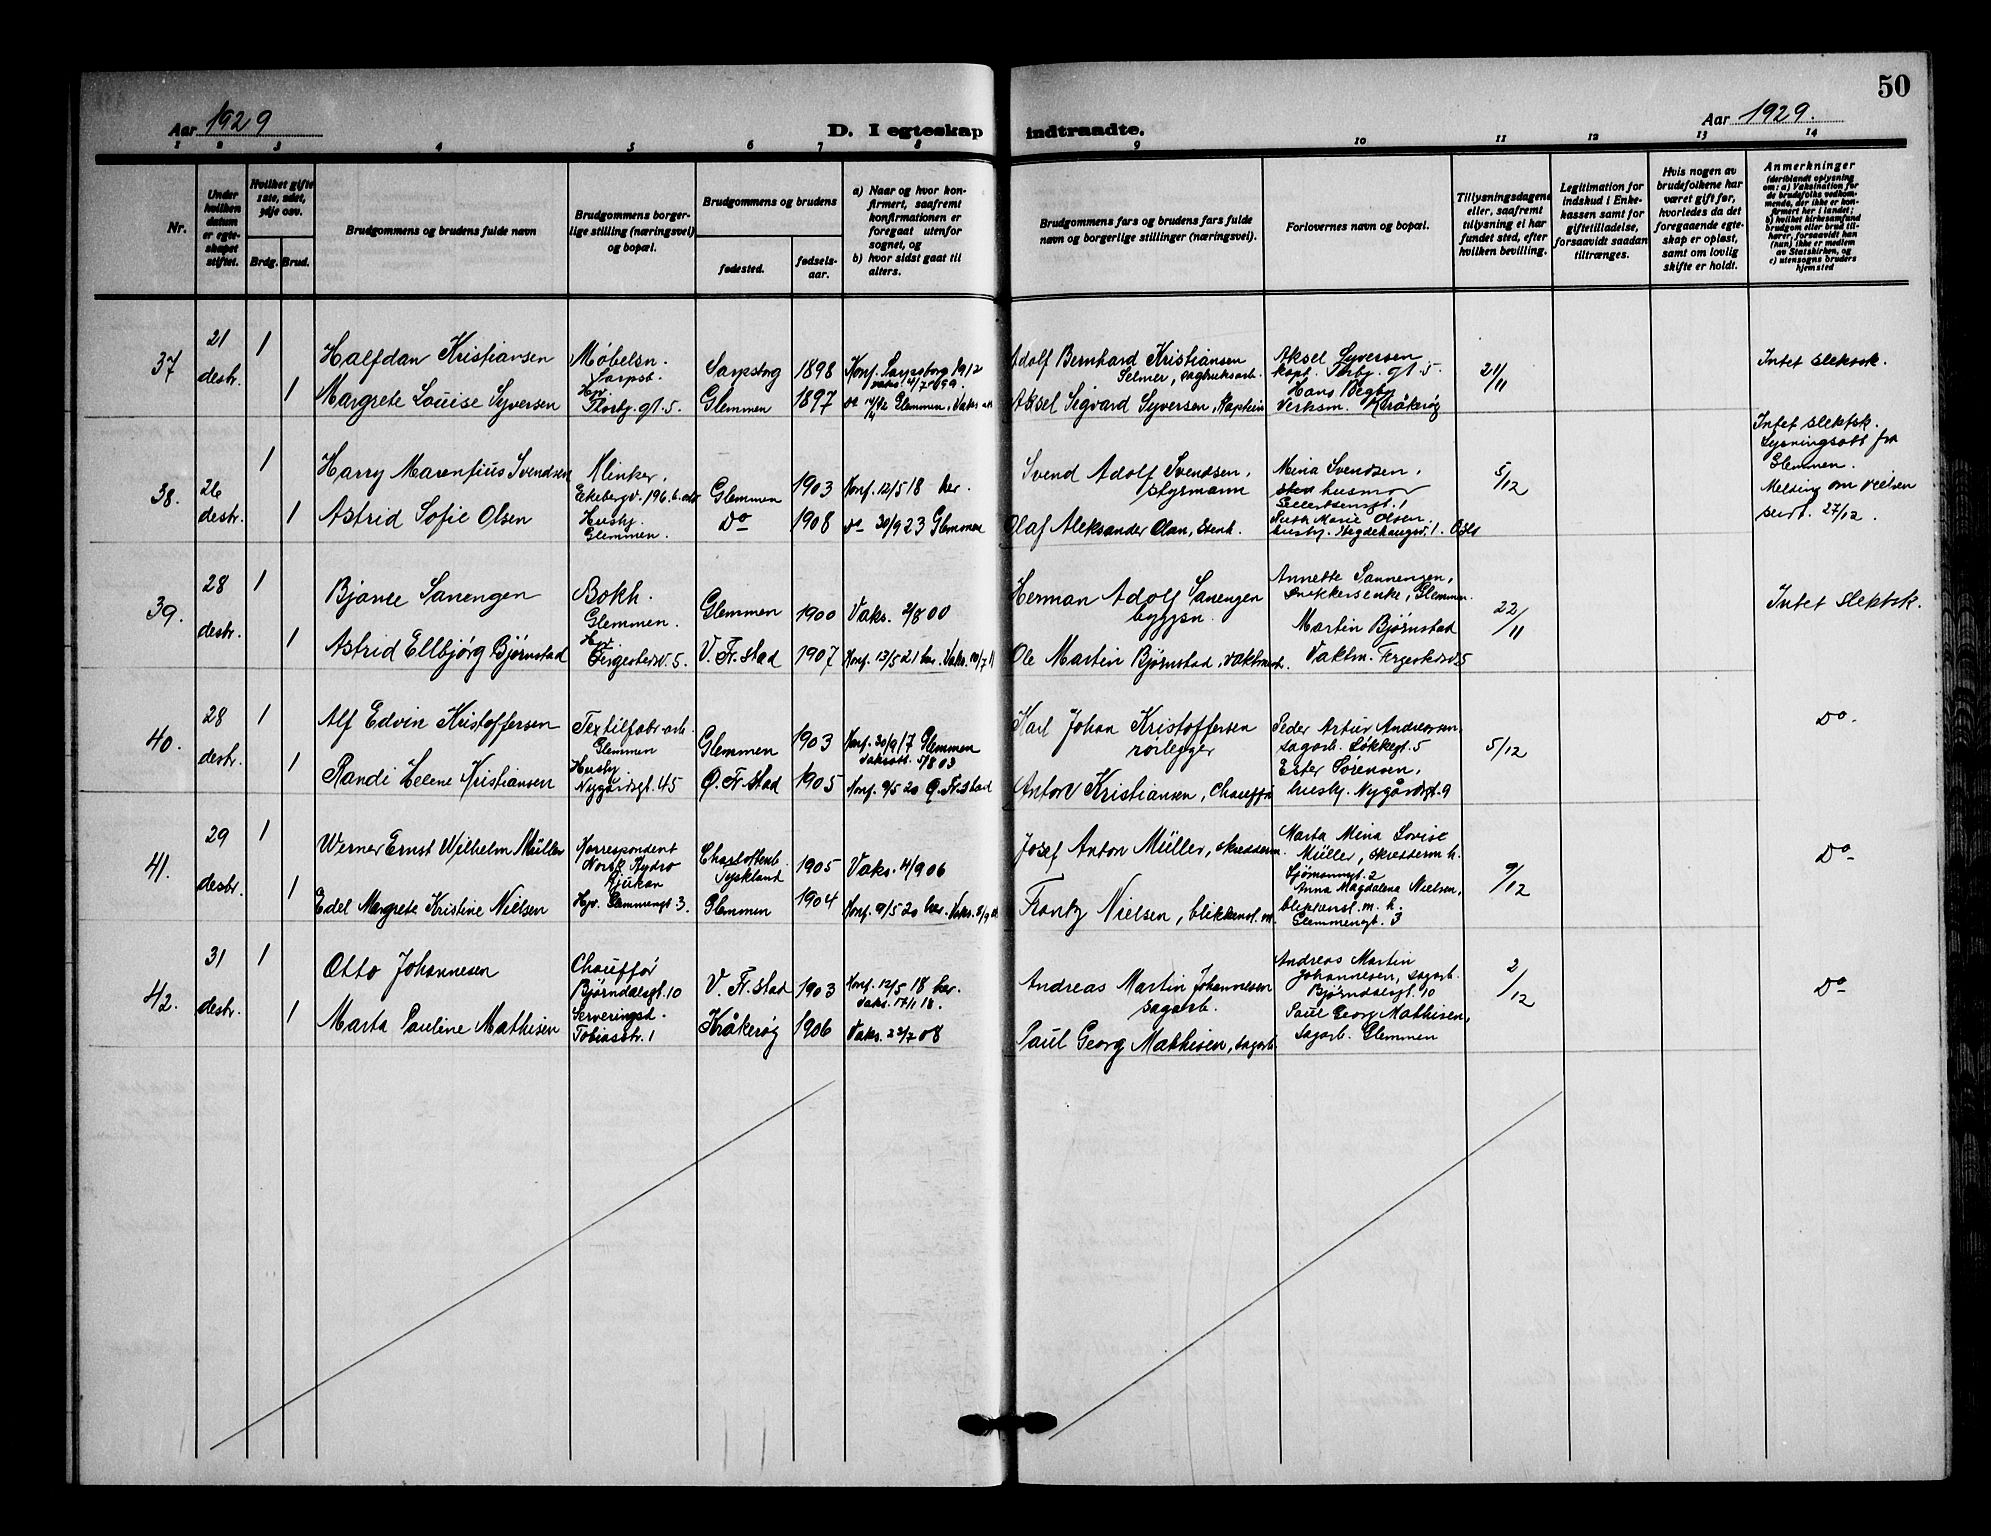 50
Aar 1929
D. I egteskap indtraadte.
Aar 1929.
1 2 3 4 5 6 7 8 9 10 11 12 13 14
Nr.
Under hvilken datum er egteskapet stiftet.
Hvilket gifte 1ste, 2det, 3dje osv.
Brdg. Brud.
Brudgommens og brudens fulde navn
Brudgommens borgerlige stilling (næringsvei) og bopæl.
Brudgommens og brudens
fødested.
fødselsaar.
a) Naar og hvor konfirmert, saafremt konfirmationen er foregaat utenfor sognet, og
b) hvor sidst gaat til alters.
Brudgommens fars og brudens fars fulde navn og borgerlige stillinger (næringsvei).
Forlovernes navn og bopæl.
Tillysningsdagene eller, saafremt tillysning ei har fundet sted, efter hvilken bevilling.
Legitimation for indskud i Enkekassen samt for giftetilladelse, forsaavidt saadan tiltrænges.
Hvis nogen av brudefolkene har været gift før, hvorledes da det foregaaende egteskap er opløst, samt om lovlig skifte er holdt.
Anmerkninger
(deriblandt oplysning om: a) Vaksination for de brudefolks vedkommende, der ikke er konfirmert her i landet; b) hvilket kirkesamfund brudgom eller brud tilhører, forsaavidt han (hun) ikke er medlem av Statskirken, og c) utensogns bruders hjemsted
37
21 desbr.
1
Halfdan Kristiansen
Møbelsn.
Sarpsb.
Sarpsborg
1898
Konf. Sarpsborg 1912
Adolf Bernhard Kristiansen
Selmer, sagbruksarb.
Aksel Syversen
kapt. Torbj. gt. 5.
21/11
Intet slektsk.
1
Margrete Louise Syversen
Hsv.
Torbj. gt. 5.
Glemmen
1897
Glemmen, Vaks
Aksel Sigvard Syversen, kaptein
Hans Begby
Verksm. Kråkerøy
38.
26 desbr.
1
Harry Marentius Svendsen
Klinker.
Glemmen
1903
Konf. 12/5 18 her.
Svend Adolf Svendsen,
styrmann
Mina Svendsen,
husmor
5/12
Intet slektsk.
Lysningsatt fra
Glemmen.
Melding om vielsen
sendt. 27/12.
1
Astrid Sofie Olsen
Husbj.
Glemmen.
Do
1908
Do 30/9 23 Glemmen
Olaf Aleksander Olsen, stenh.
Ruth Marie Olsen
husbj. Hegdehaugsv. 1. Oslo
39.
28 desbr.
1
Bjarne Sanengen
Bokh.
Glemmen.
Glemmen
1900
Vaks. 2/8 00
Herman Adolf Sanengen
byggsn.
Annette Sannengen,
snekkerenke, Glemmen.
22/11
Intet slektsk.
1
Astrid Ellbjørg Bjørnstad
Hsv.
Fergestedsv. 5.
V. Fr.stad
1907
Konf. 13/5 21 her. Vaks. 10/7 11
Ole Martin Bjørnstad, vaktmest.
Martin Bjørnstad
Vaktm. Fergestedsv. 5
40.
28 desbr.
1
Alf Edvin Kristoffersen
Textilfabr. arb.
Glemmen
Glemmen
1903
Konf. 30/9 17 Glemmen
Vaksatt. 5/8 03
Karl Johan Kristoffersen
rørlegger
Peder Artur Andreassen,
sagarb. Løkkegt. 5
5/12
Do.
1
Randi Helene Kristiansen
Husbj
Nygårdsgt. 45
Ø. Fr.stad
1905
Konf. 9/5 20 Ø. Fr.stad
Anton Kristiansen, Chauffør
Ester Sørensen,
husbj. Nygårdsgt. 9
41.
29 desbr.
1
Werner Ernst Wilhelm Müller
Korrespondent
Norsk Hydro
Rjukan
Charlottenb.
Tyskland
1905
Vaks. 4/9 06
Josef Anton Müller, skredderm.
Marta Mina Lovise
Müller, skredderm. h.
Sjømannsgt. 2
9/12
Do
1
Edel Margrete Kristine Nielsen
Hjv. Glemmengt 3.
Glemmen
1904
Konf. 9/5 20 her.
Frantz Nielsen, blikkensl. m.
Anna Magdalena Nielsen,
blikkensl. m. h.
Glemmengt. 3
42.
31 desbr.
1
Otto Johannesen
Chauffør
Bjørndalsgt. 10
V. Fr.stad
1903
Konf. 12/5 18 her.
Vaks. 17/1 18.
Andreas Martin Johannesen
sagarb.
Andreas Martin
Johannesen, sagarb.
Bjørndalsgt. 10
2/12
Do
1
Marta Pauline Mathisen
Serveringsd.
Tobiasstr. 1
Kråkerøy
1906
Vaks. 23/7 08
Paul Georg Mathisen, sagarb.
Paul Georg Mathisen,
sagarb. Glemmen